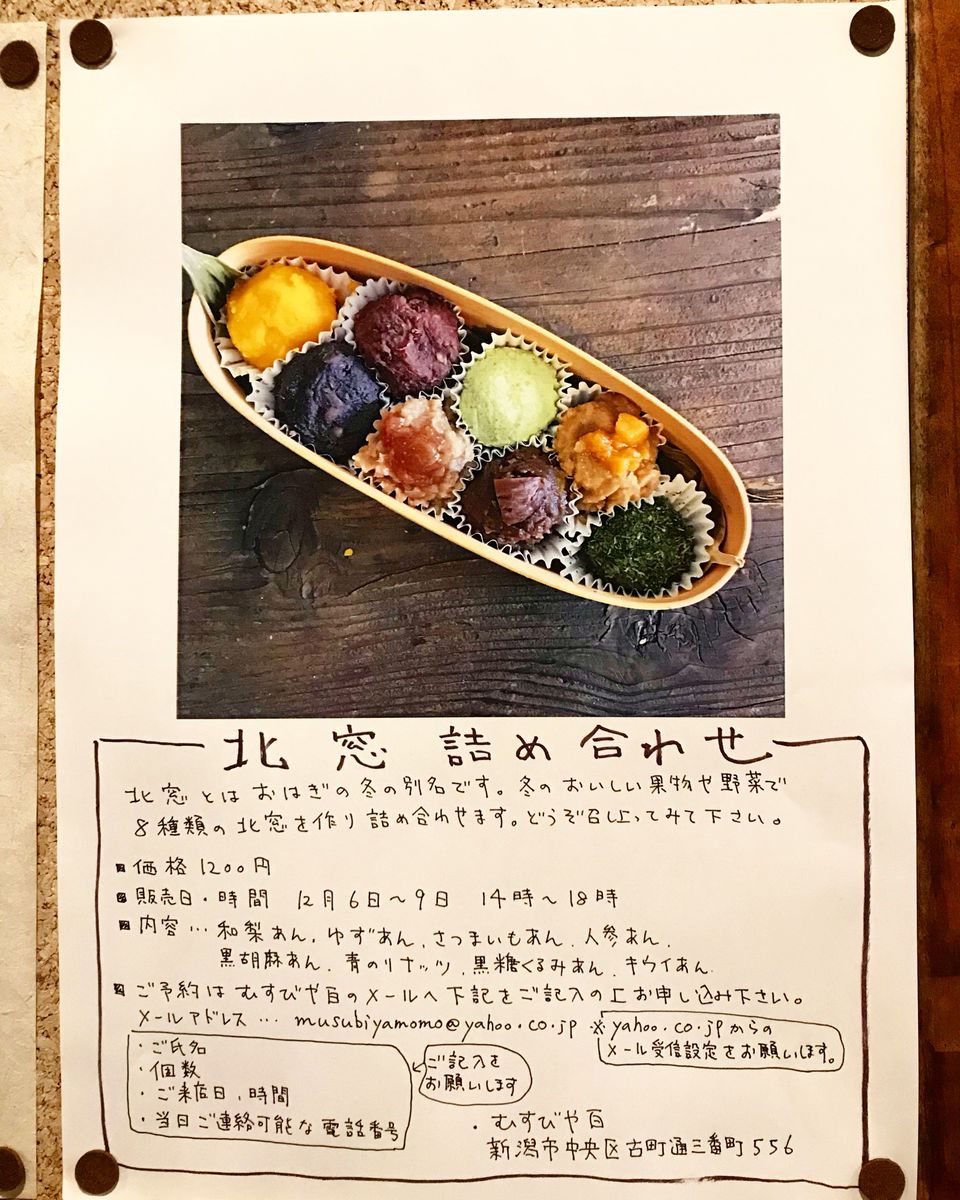 北窓 詰め合わせ
北窓とはおはぎの冬の別名です。冬のおいしい果物や野菜で
8種類の北窓を作り詰め合わせます。どうぞ召し上ってみて下さい。
価格 1200円
販売日・時間 12月6日～9日 14時～18時
内容… 和梨あん、ゆずあん、さつまいもあん、人参あん、
黒胡麻あん、青のりナッツ、黒糖くるみあん、キウイあん
ご予約はむすびや百のメールへ下記をご記入の上お申し込み下さい。
メールアドレス… musubiyamomo@yahoo.co.jp ※yahoo.co.jpからの
メール受信設定をお願いします。
・ご氏名
・個数
・ご来店日、時間
・当日ご連絡可能な電話番号
ご記入を
お願いします
・むすびや百
新潟市中央区古町通三番町556